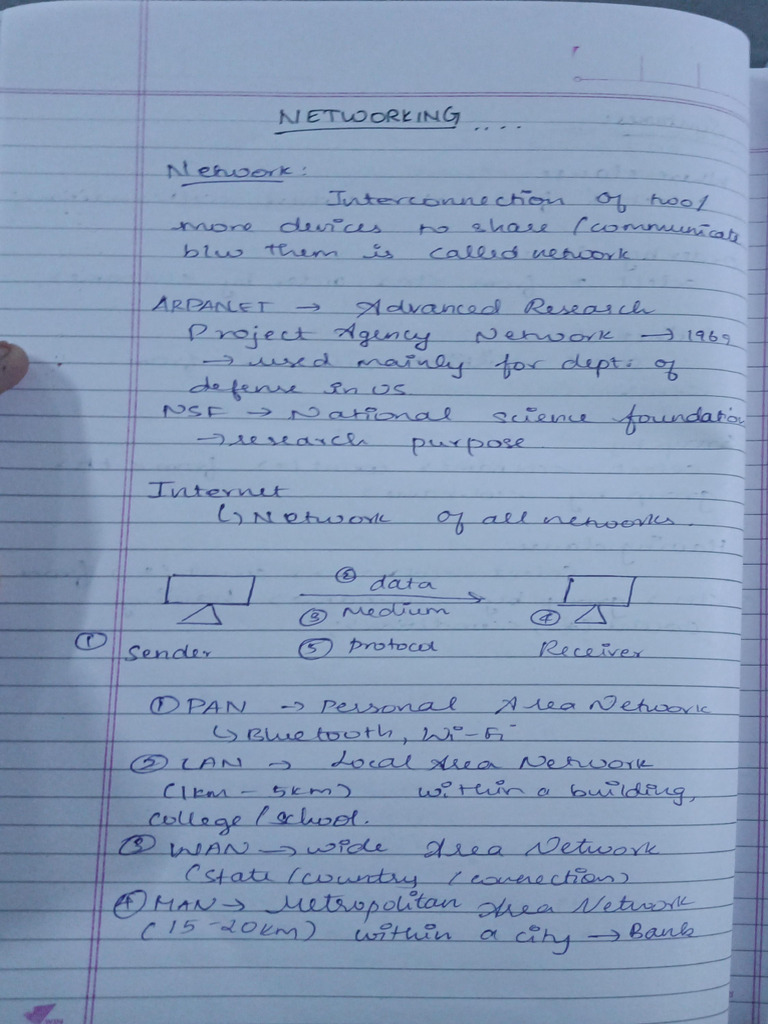 NETWORKING ....
Network:
Interconnection of two/
more devices to share /communicate
b/w them is called network
ARPANET → Advanced Research
Project Agency Network → 1969
→ used mainly for dept. of
defense in US
NSF → National science foundation
→ research purpose
Internet
↳ Network of all networks.
② data
③ Medium ④
① Sender ⑤ Protocol Receiver
① PAN → Personal Area Network
↳ Bluetooth, Wi-Fi
② LAN → Local Area Network
(1km - 5km) within a building,
college / school.
③ WAN → wide Area Network
(State / country / connection)
④ MAN → Metropolitan Area Network
(15-20km) within a city → Bank